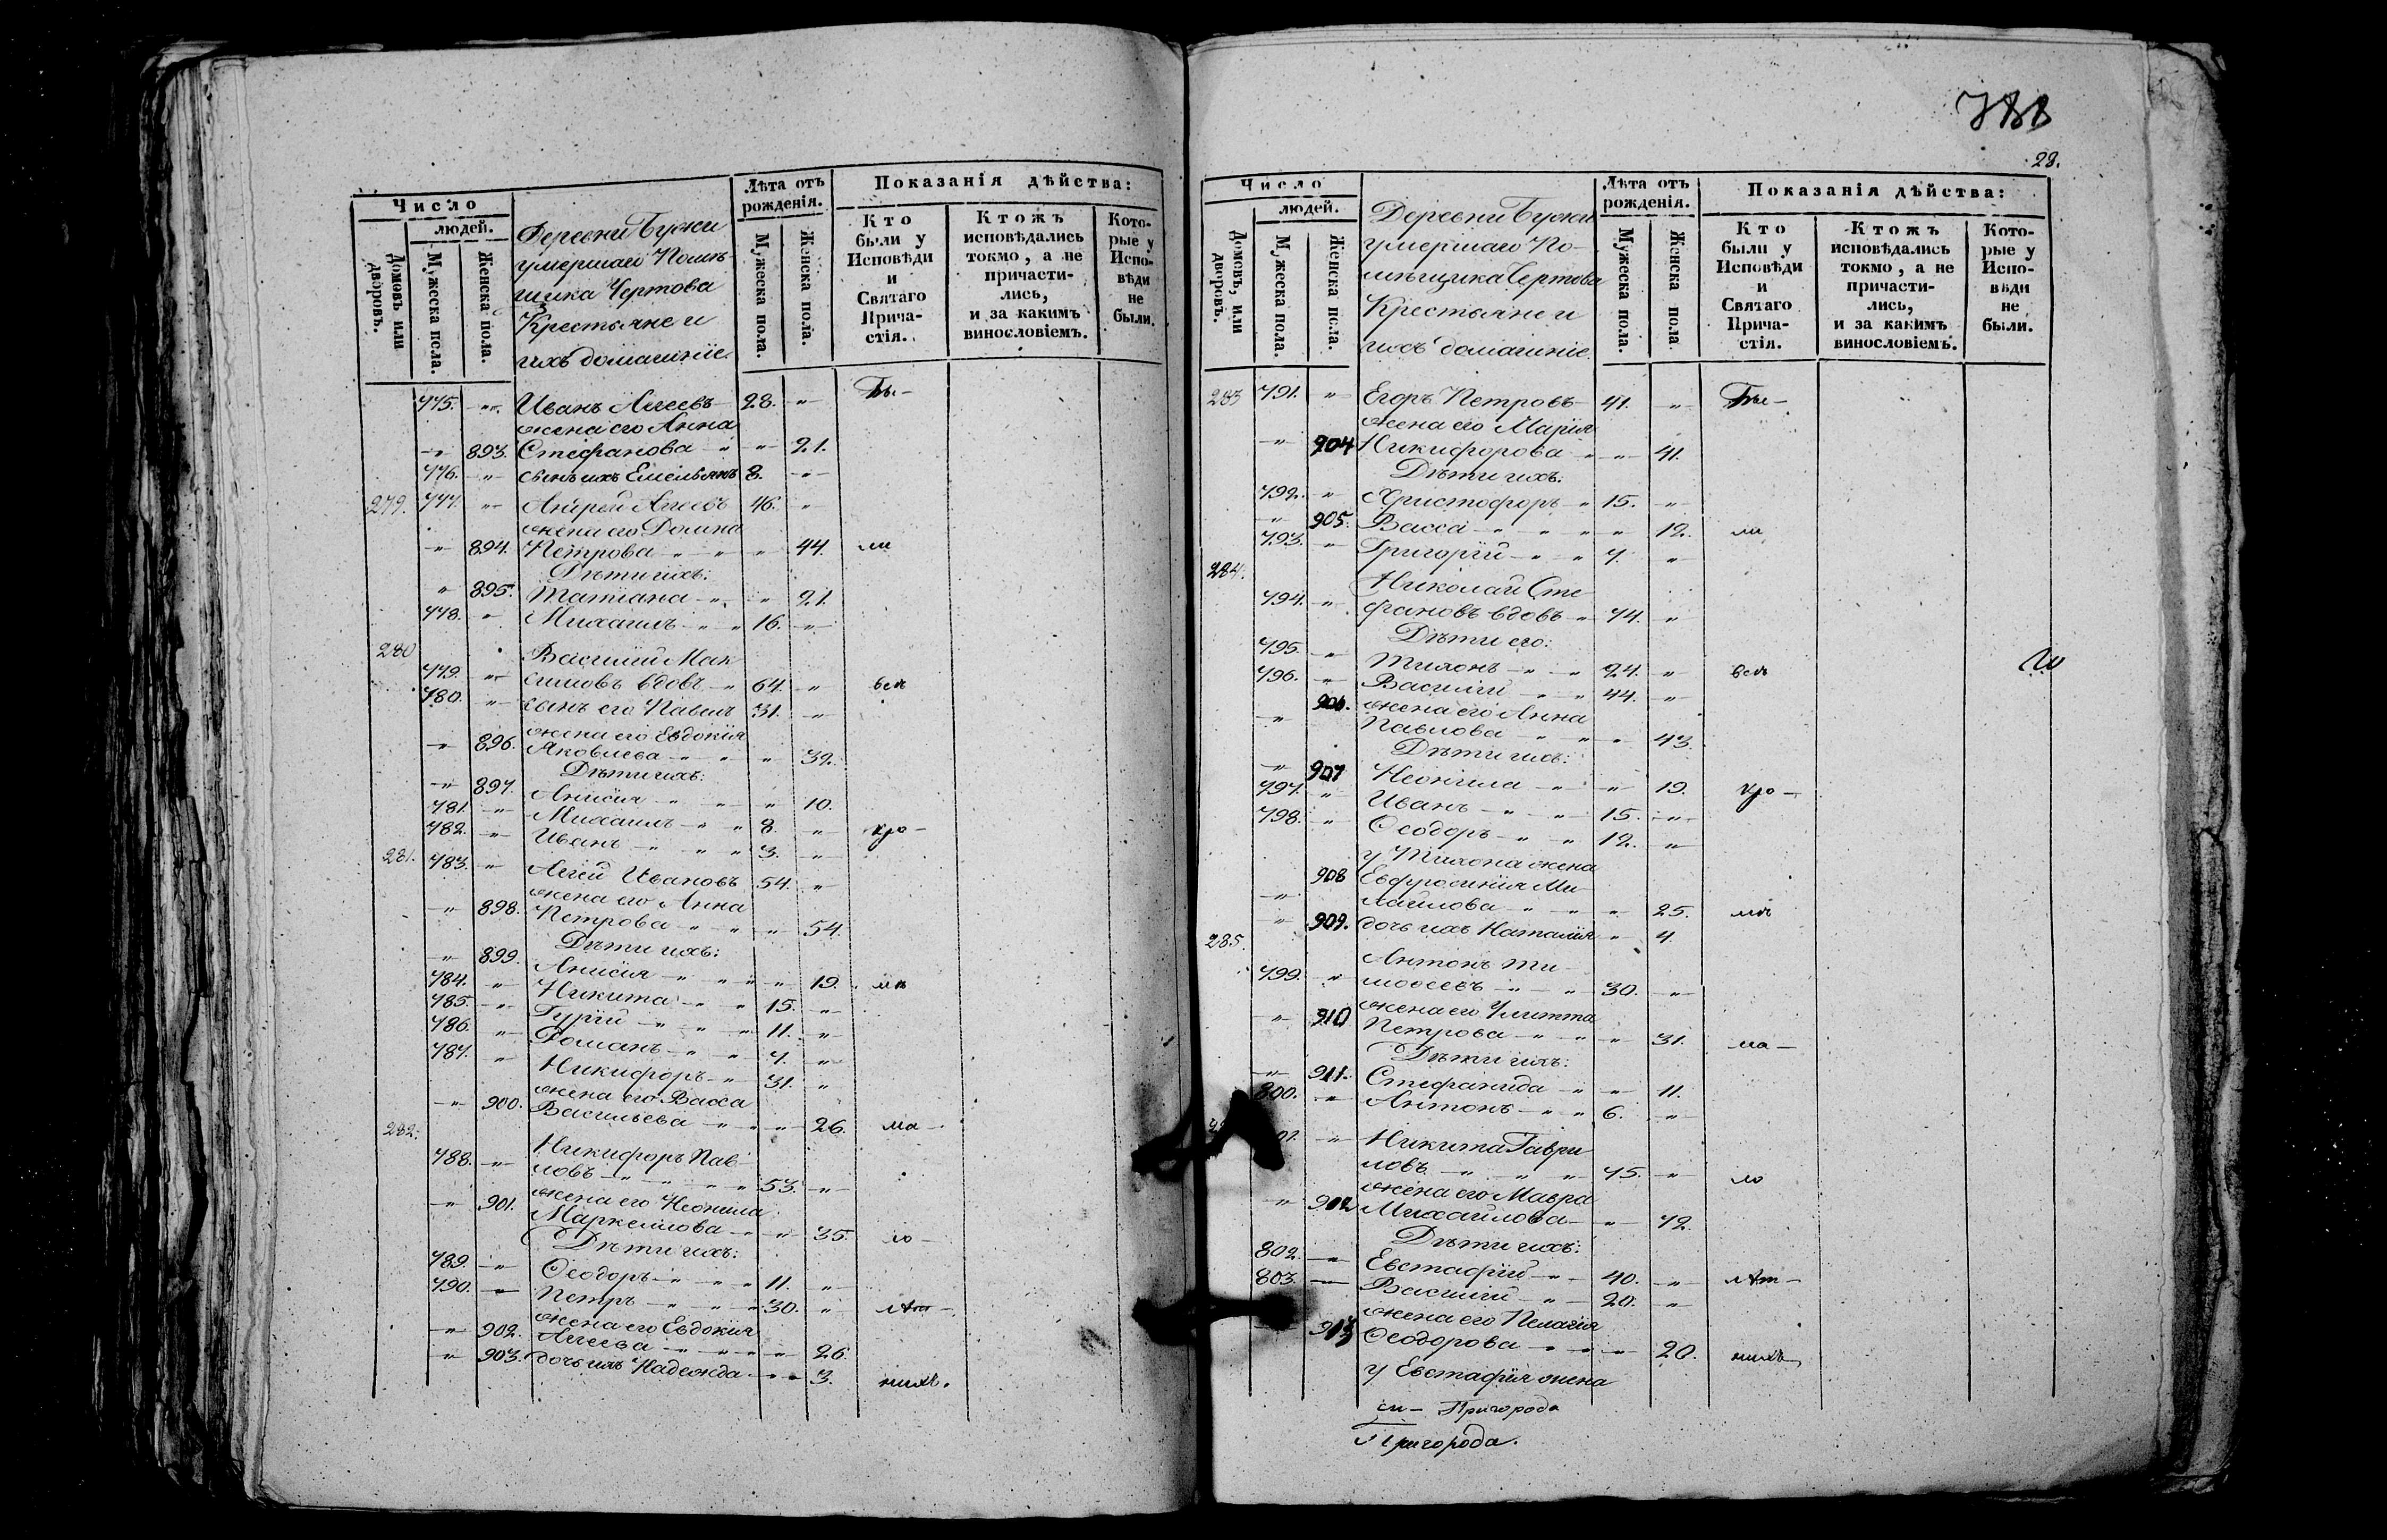 Число
людей.
Домовъ или дворовъ.
Мужеска пола.
Женска пола.
Деревни Бужи
умершаго Помѣ-
щика Чертова
Крестьяне и
ихъ домашніе
Лѣта отъ
рожденія.
Мужеска пола.
Женска пола.
Показанія дѣйства:
Кто
были у
Исповѣди
и
Святаго
Прича-
стія.
Ктожъ
исповѣдались
токмо, а не
причасти-
лись,
и за какимъ
винословіемъ.
Кото-
рые у
Испо-
вѣди
не
были.
775. " Иванъ Агеевъ 28. " Бы-
жена его Анна
" 893. Стефанова " " 21.
776. " сынъ ихъ Емельянъ 8. "
279. 777. " Андрей Агеевъ 46. "
жена его Домна
" 894. Петрова " " " 44. ли
Дѣти ихъ:
" 895. Татіана " " 21.
778. " Михаилъ " " 16. "
280 Василий Мак
779. " симовъ вдовъ " 64. " всѣ
780. " сынъ его Павелъ 31. "
жена его Евдокія
" 896. Яковлева " " " 32.
Дѣти ихъ:
" 897. Анисія " " " 10.
781. " Михаилъ " " 8. "
782. " Иванъ " " " 3. " кро-
281. 783. " Агей Ивановъ 54. "
жена его Анна
" 898. Петрова " " " 54.
Дѣти ихъ:
" 899. Анисія " " " " 19. мѣ
784. " Никита " " 15. "
785. " Гурій " " " 11. "
786. " Романъ " " 7. "
787. " Никифоръ " 31. "
жена его Васса
" 900. Васильева " " " 26. ма-
282. Никифоръ Пав-
788. " ловъ " " " " 53. "
жена его Неонила
" 901. Маркеллова " " 35. ло-
Дѣти ихъ:
789. " Ѳеодоръ " " " 11. "
790. " Петръ " " " 30. " лѣт-
жена его Евдокія
" 902. Агеева " " " " 26.
" 903. дочь ихъ Надежда " " 3. нихъ.
28.
Число
людей.
Домовъ, или дворовъ.
Мужеска пола.
Женска пола.
Деревни Бужи
умершаго По-
мѣщика Чертова
Крестьяне и
ихъ домашніе
Лѣта отъ
рожденія.
Мужеска пола.
Женска пола
Показанія дѣйства:
Кто
были у
Исповѣди
и
Святаго
Прича-
стія.
Ктожъ
исповѣдались
токмо, а не
причасти-
лись,
и за какимъ
винословіемъ.
Кото-
рые у
Испо-
вѣди
не
были.
283 791. " Егоръ Петровъ 41. " Бы-
жена его Марія
" 904 Никифорова " " 41.
Дѣти ихъ:
792. " Христофоръ " 15. "
" 905. Васса " " " " 12. ли
793. " Григорій " " 7. "
284. Николай Сте
794. " фановъ вдовъ " 74. "
Дѣти его:
795. " Тихонъ " " 24. " всѣ
796. " Василій " " 44. "
906. жена его Анна
" Павлова " " " 43
Дѣти ихъ:
" 907 Неонила " " 19. кро-
797. " Иванъ " " 15. "
798. " Ѳеодоръ " " 12. "
у Тихона жена
908 Евфросинія Ми-
" хайлова " " " 25. мѣ
" 909. дочь ихъ Наталія " 4.
285. Антонъ Ти-
799. " моѳеевъ " " 30. "
жена его Улитта
" 910 Петрова " " " 31. ма-
Дѣти ихъ:
" 911. Стефанида " " 11.
800. " Антонъ " " 6. "
01. " Никита Гаври
ловъ " " " 75. " ло
жена его Мавра
" 902 Михайлова " " 72.
Дѣти ихъ:
802. " Евстафій " " 40. " лѣт-
803. " Василій " " 20. "
жена его Пелагія
" 913 Ѳеодорова " " " 20. нихъ
у Евстафія жена
см- Пригорода
Пригорода.